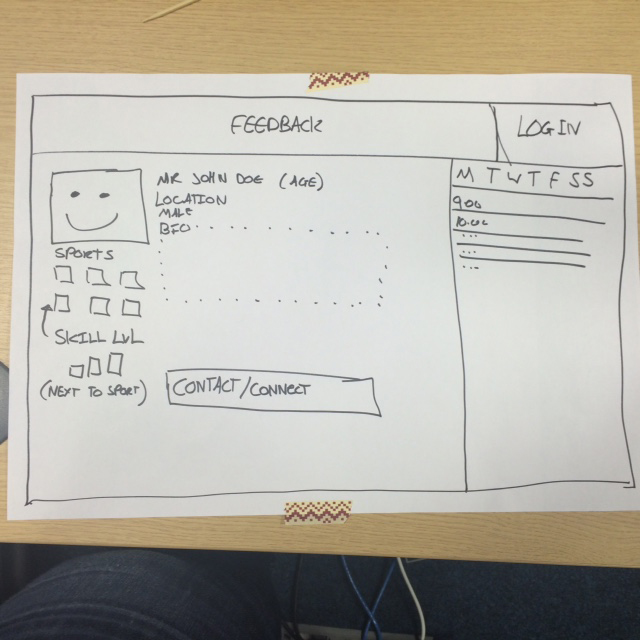 FEEDBACK
LOGIN
MR JOHN DOE (AGE)
LOCATION
MALE
BIO
SPORTS
SKILL LVL
(NEXT TO SPORT)
CONTACT/CONNECT
M T W T F S S
9:00
10:00
...
...
...